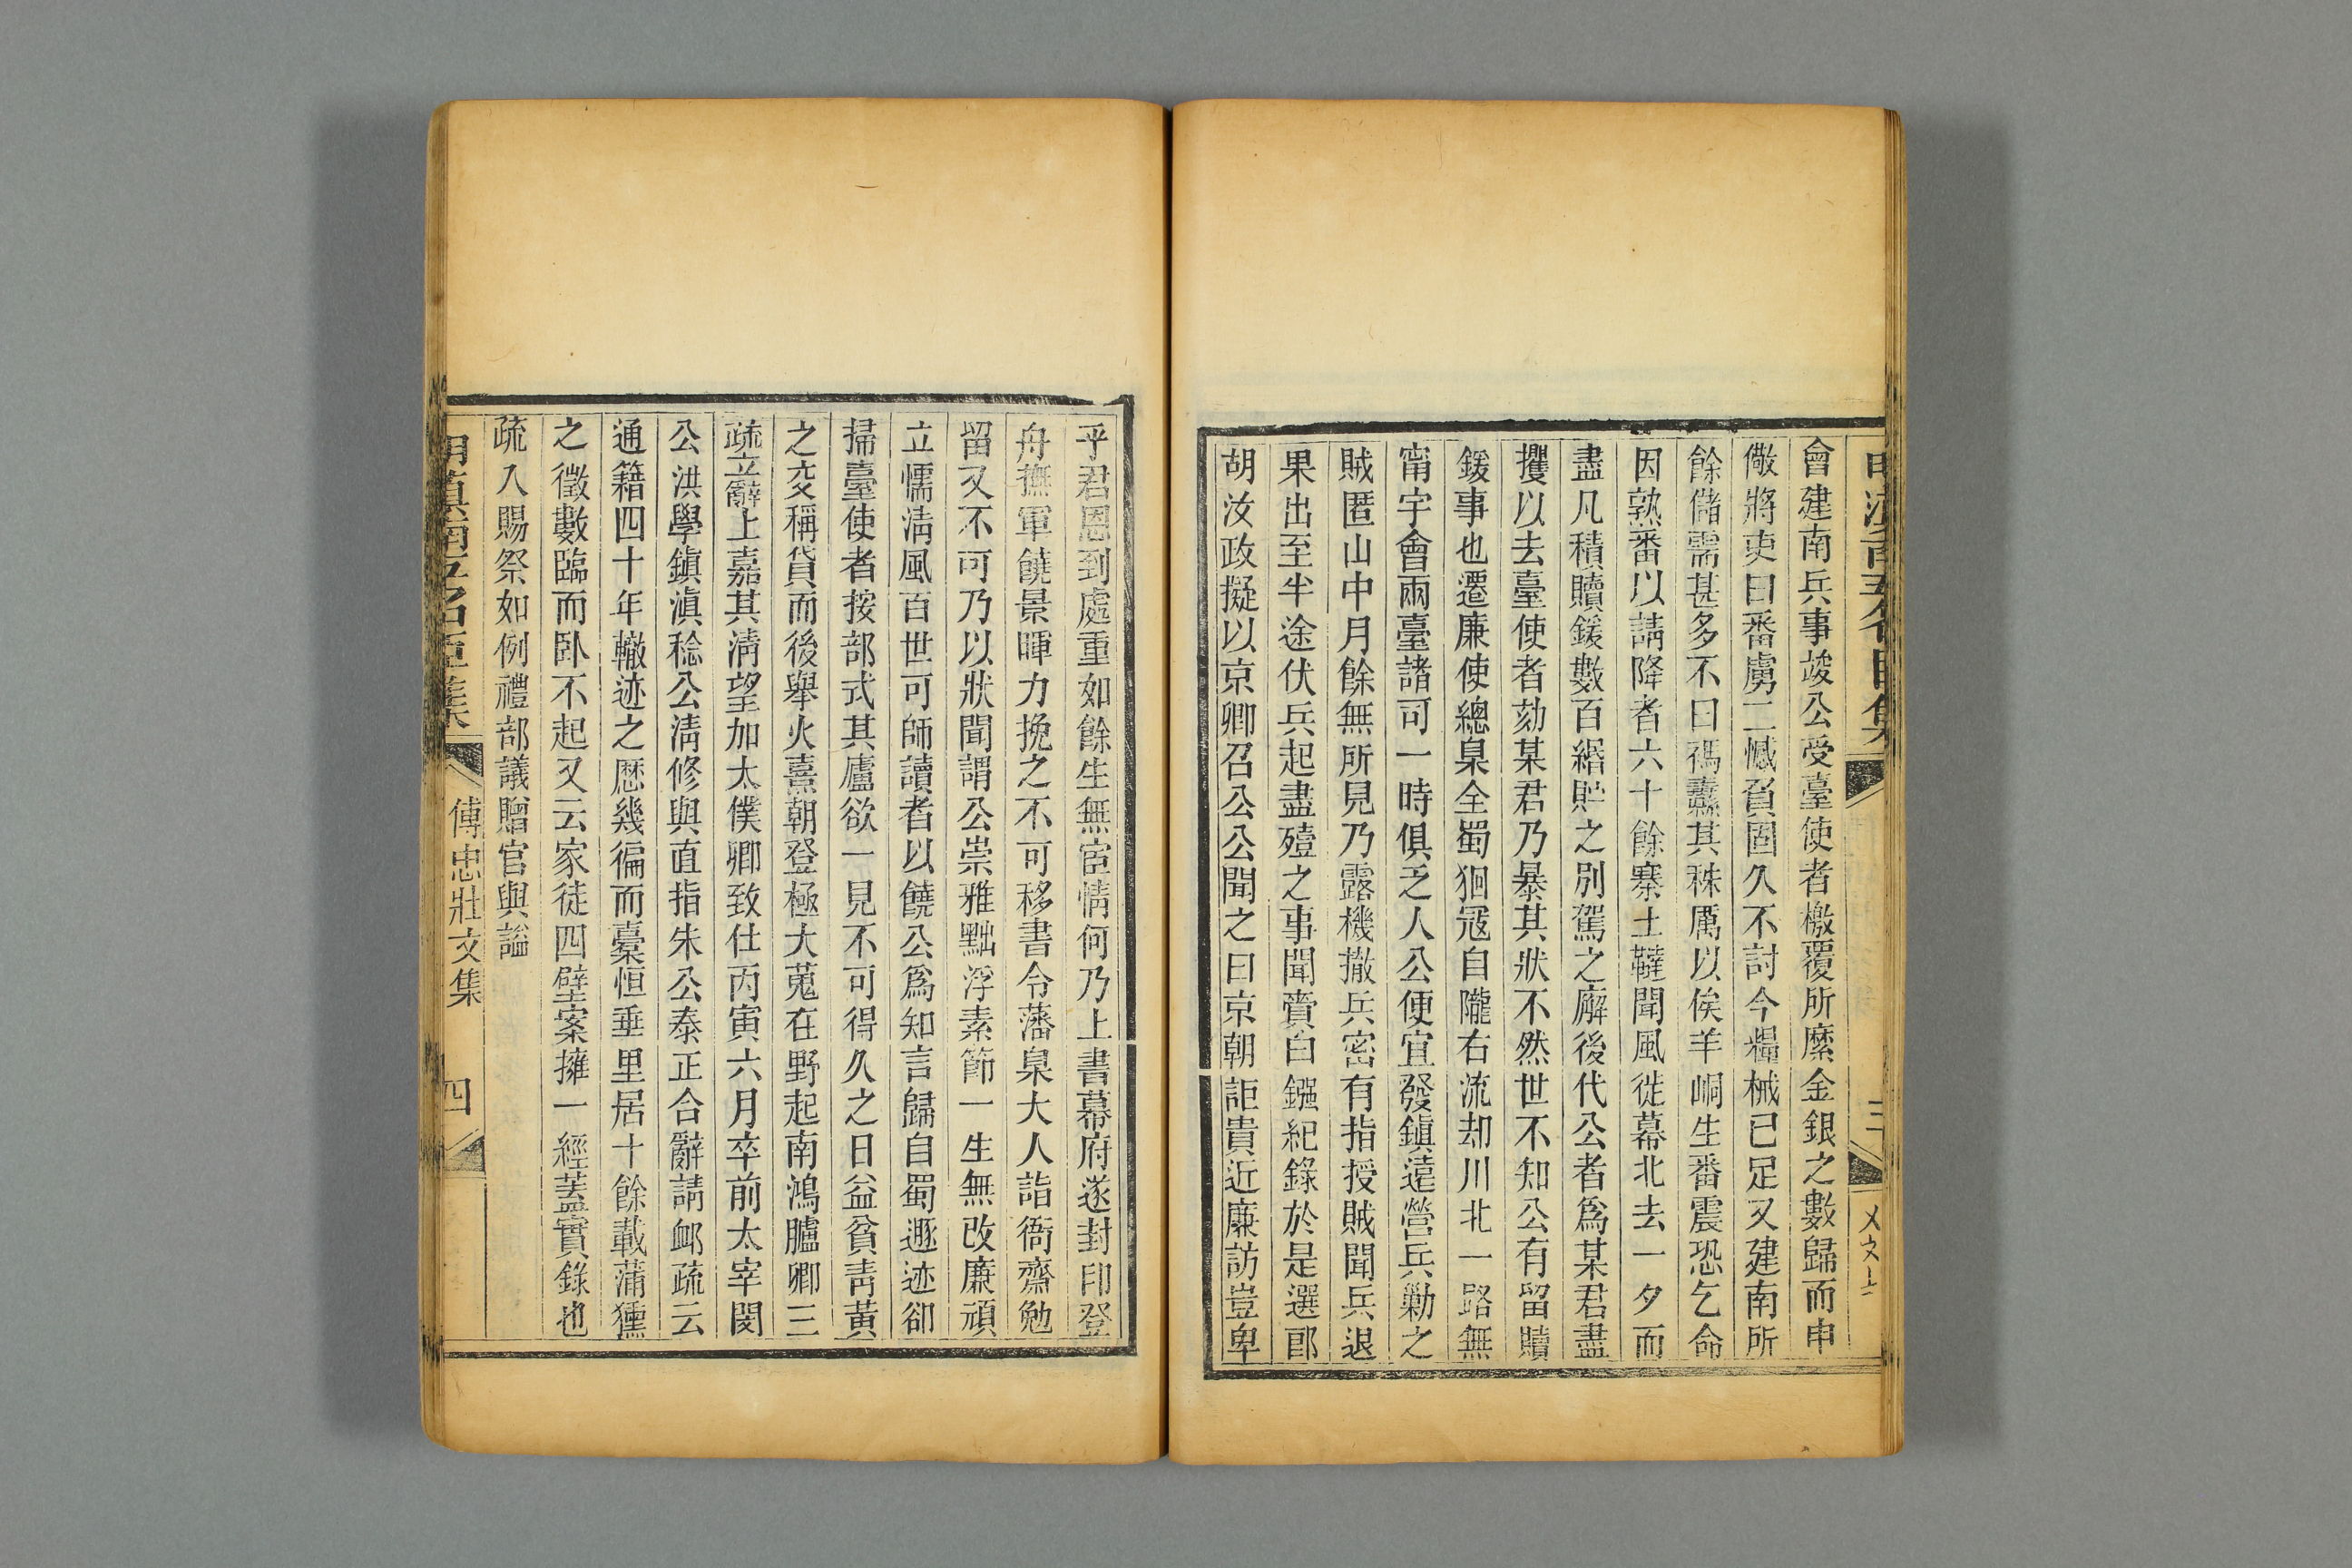 會建南兵事竣公受臺使者檄覆所縻金銀之數歸而申
儆將吏曰番虜二憾負固久不討今糧械已足又建南所
餘儲需甚多不曰禡纛其秣厲以俟羊峒生番震恐乞命
因熟番以請降者六十餘寨土韃聞風徙幕北去一夕而
盡凡積贖鍰數百緡貯之別駕之廨後代公者爲某君盡
攫以去臺使者劾某君乃暴其狀不然世不知公有留贖
鍰事也遷廉使總臬全蜀狪寇自隴右流却川北一路無
甯宇會兩臺諸司一時俱乏人公便宜發鎮遠營兵勦之
賊匿山中月餘無所見乃露機撤兵密有指授賊聞兵退
果出至半途伏兵起盡殪之事聞賚白鏹紀錄於是選郎
胡汝政擬以京卿召公公聞之曰京朝詎貴近廉訪豈卑
乎君恩到處重如餘生無宦情何乃上書幕府遂封印登
舟撫軍饒景暉力挽之不可移書令藩臬大人詣衙齋勉
留又不可乃以狀聞謂公崇雅黜浮素節一生無改廉頑
立懦清風百世可師讀者以饒公爲知言歸自蜀遯迹卻
掃臺使者按部式其廬欲一見不可得久之日益貧青黃
之交稱貸而後舉火熹朝登極大蒐在野起南鴻臚卿三
疏立辭上嘉其清望加太僕卿致仕丙寅六月卒前太宰閔
公洪學鎮滇稔公清修與直指朱公泰正合辭請卹疏云
通籍四十年轍迹之歷幾徧而橐恒垂里居十餘載蒲獯
之徵數臨而臥不起又云家徒四壁案擁一經蓋實錄也
疏入賜祭如例禮部議贈官與諡
明滇南五名臣集 傅忠壯文集 四